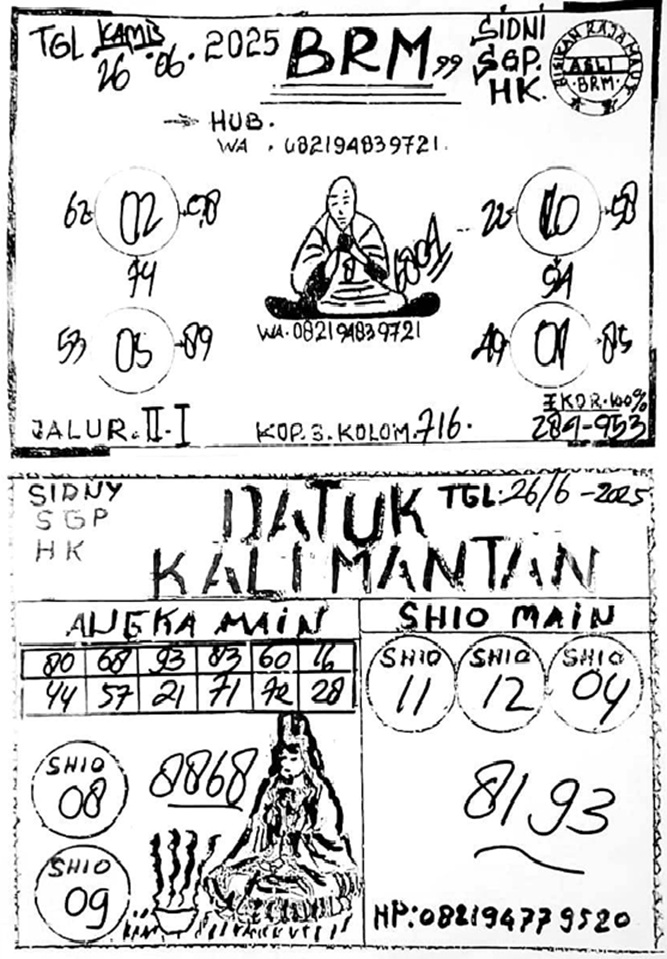 TGL. KAMIS 26.06.2025
BRM 99
SIDNI
SGP.
HK.
BISIKAN RAJA MAUT
ASLI
BRM
HUB.
WA . 082194839721.
62 02 98
74
22 10 58
94
WA. 082194839721
53 05 89
49 01 85
JALUR. II-I
KOP. 3. KOLOM. 716.
EKOR. 100%
284-953
SIDNY
SGP
HK
DATUK
KALIMANTAN
TGL: 26/6-2025
ANGKA MAIN
80 68 93 83 60 16
44 57 21 71 72 28
SHIO MAIN
SHIO
11
SHIO
12
SHIO
04
SHIO
08
8868
SHIO
09
8193
HP: 082194779520